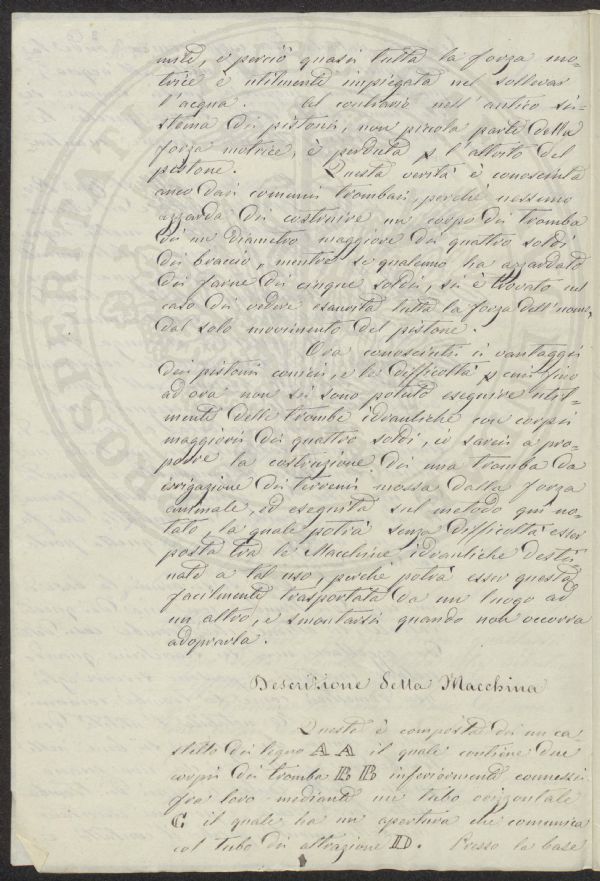 mità, e perciò quasi tutta la forza mo-
trice è utilmente impiegata nel sollevar
l'acqua. Al contrario nell'antico si-
stema di pistoni, non piccola parte della
forza motrice, è perduta p l'attrito del
pistone. Questa verità è conosciuta
anco dai comuni trombai, perchè nessuno
azzarda di costruire un corpo di tromba
di un diametro maggiore di quattro soldi
di braccio, mentre se qualcuno ha azzardato
di farne di cinque soldi, si è trovato nel
caso di vedere esaurita tutta la forza dell'uomo,
dal solo movimento del pistone.
Ora conosciuti i vantaggi
dei pistoni conici, e le difficoltà p cui fino
ad ora non si sono potute eseguire util-
mente delle trombe idrauliche con corpi
maggiori di quattro soldi, io sarei a pro-
porre la costruzione di una tromba da
irrigazione di terreni mossa dalla forza
animale, ed eseguita sul metodo qui no-
tato, la quale potrà senza difficoltà esser
posta tra le Macchine idrauliche desti-
nate a tal uso, perchè potrà esser questa
facilmente trasportata da un luogo ad
un altro, e smontarsi quando non occorra
adoprarla.
Descrizione della Macchina
Questa è composta di un ca-
stello di legno AA il quale contiene due
corpi di tromba BB inferiormente connessi
fra loro mediante un tubo orizzontale
C il quale ha un'apertura che comunica
col tubo di attrazione D. Presso la base
PROSPERITATI